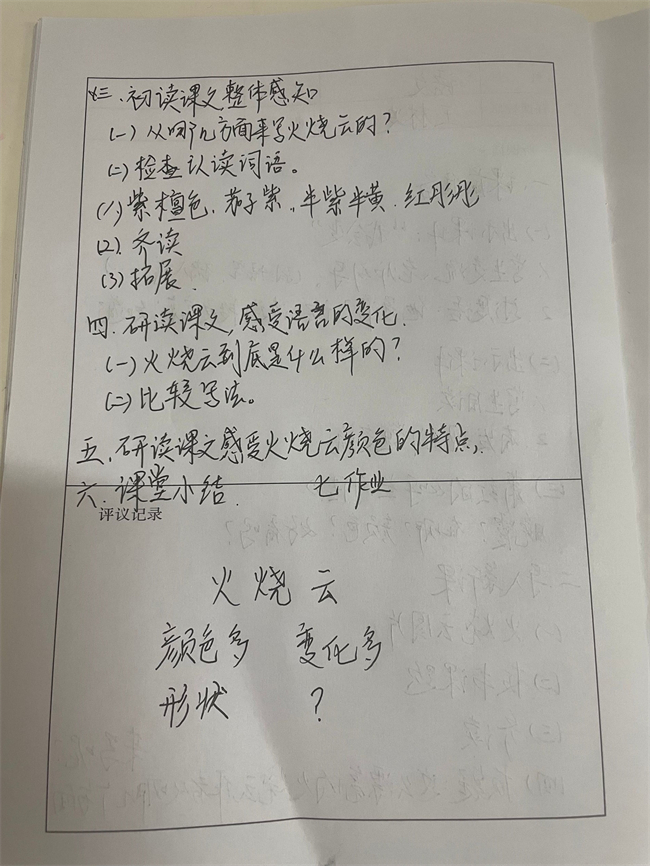 三、初读课文,整体感知
(一)从哪几方面来写火烧云的?
(二)检查认读词语。
(1)紫檀色、茄子紫、半紫半黄、红彤彤
(2)齐读
(3)拓展.
四、研读课文,感受语言的变化.
(一)火烧云到底是什么样的?
(二)比较写法。
五、研读课文感受火烧云颜色的特点,
六、课堂小结. 七作业
评议记录
火烧云
颜色多 变化多
形状 ?